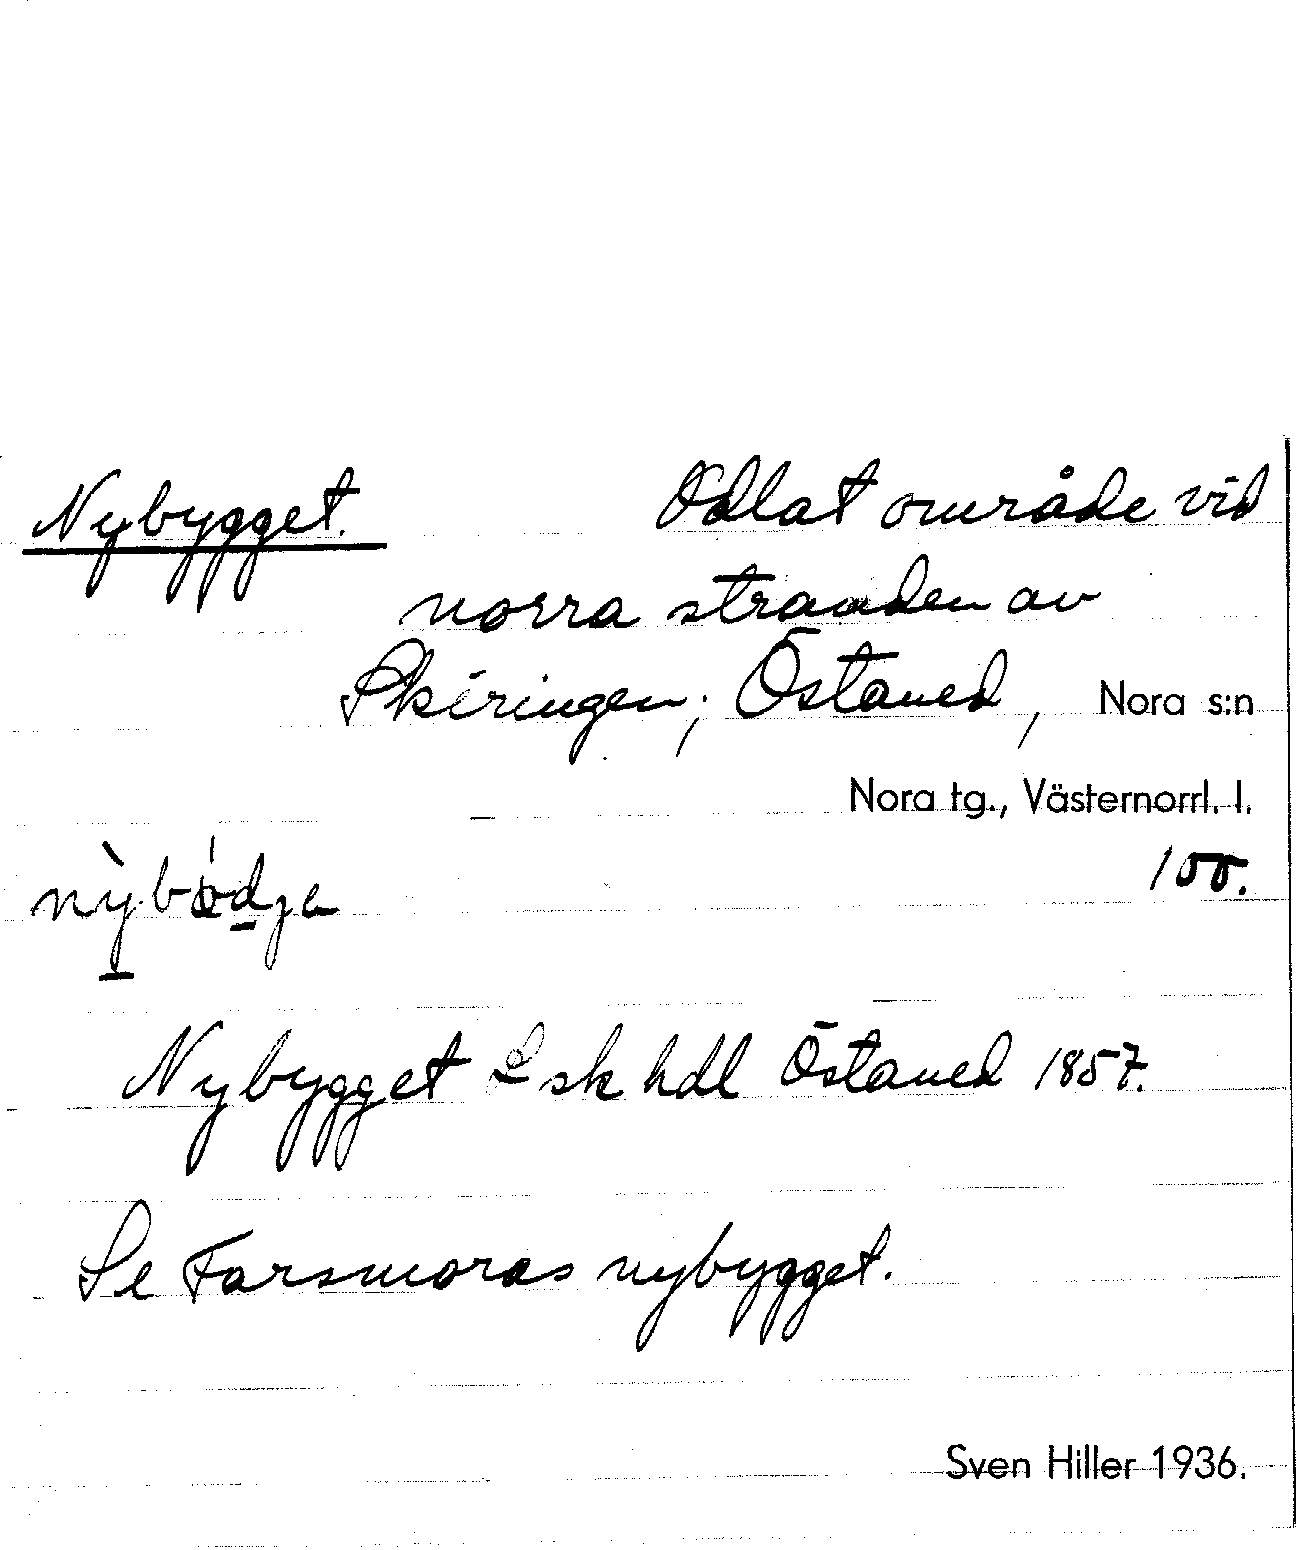 Nybygget. Odlat område vid
norra stranden av
Skiringen; Östaned, Nora s:n
Nora tg., Västernorrl. l.
100.
Nybygget L sk hdl Östaned 1857.
Se Farsmoras nybygget.
Sven Hiller 1936.